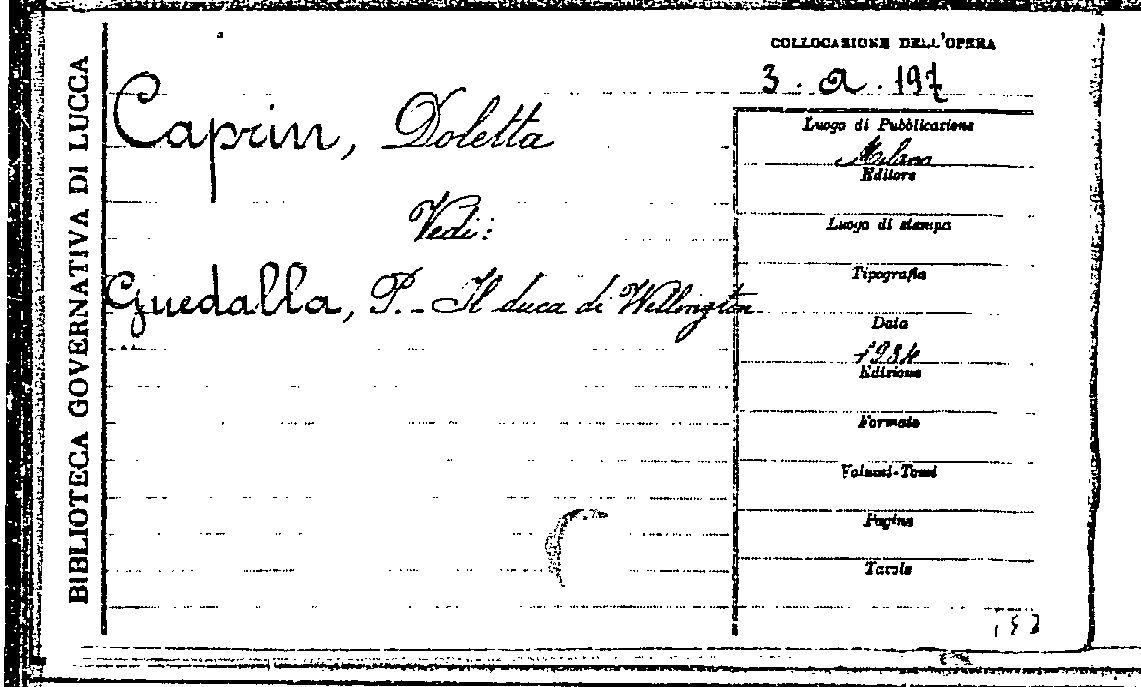 BIBLIOTECA GOVERNATIVA DI LUCCA
COLLOCAZIONE DELL'OPERA
3. a. 197
Caprin, Doletta
Vedi:
Guedalla, P. - Il duca di Wellington
Luogo di Pubblicazione
Milano
Editore
Luogo di stampa
Tipografia
Data
1934
Edizione
Formato
Volumi-Tomi
Pagine
Tavole